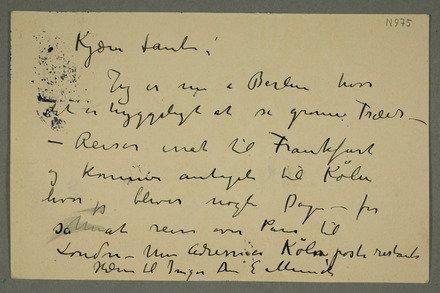 N975
Kjære tante!
Jeg er nu i Berlin hvor
det er hyggeligt at se grønne Træer —
— Reiser inat til Frankfurt
og kommer antagelig til Köln
hvor jeg bliver nogle Dage — for
så at reise over Paris til
London — Min Adresse is Köln poste restante
Hilsen til Inger Din E Munch